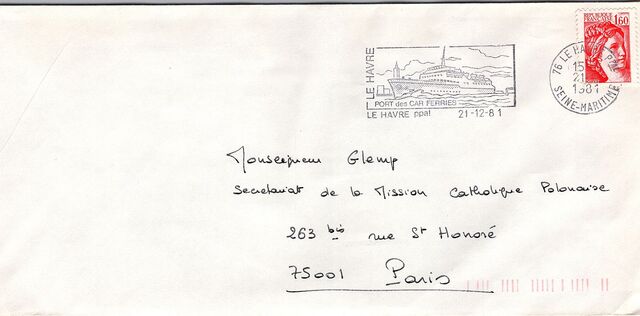 REPUBLIQUE FRANCAISE
1,60
LE HAVRE
PORT des CAR FERRIES
LE HAVRE ppal 21-12-81
76 LE HA
15
21
1981
SEINE-MARITIME
Monseigneur Glemp
Secretariat de la Mission Catholique Polonaise
263 bis rue St Honoré
75001 Paris